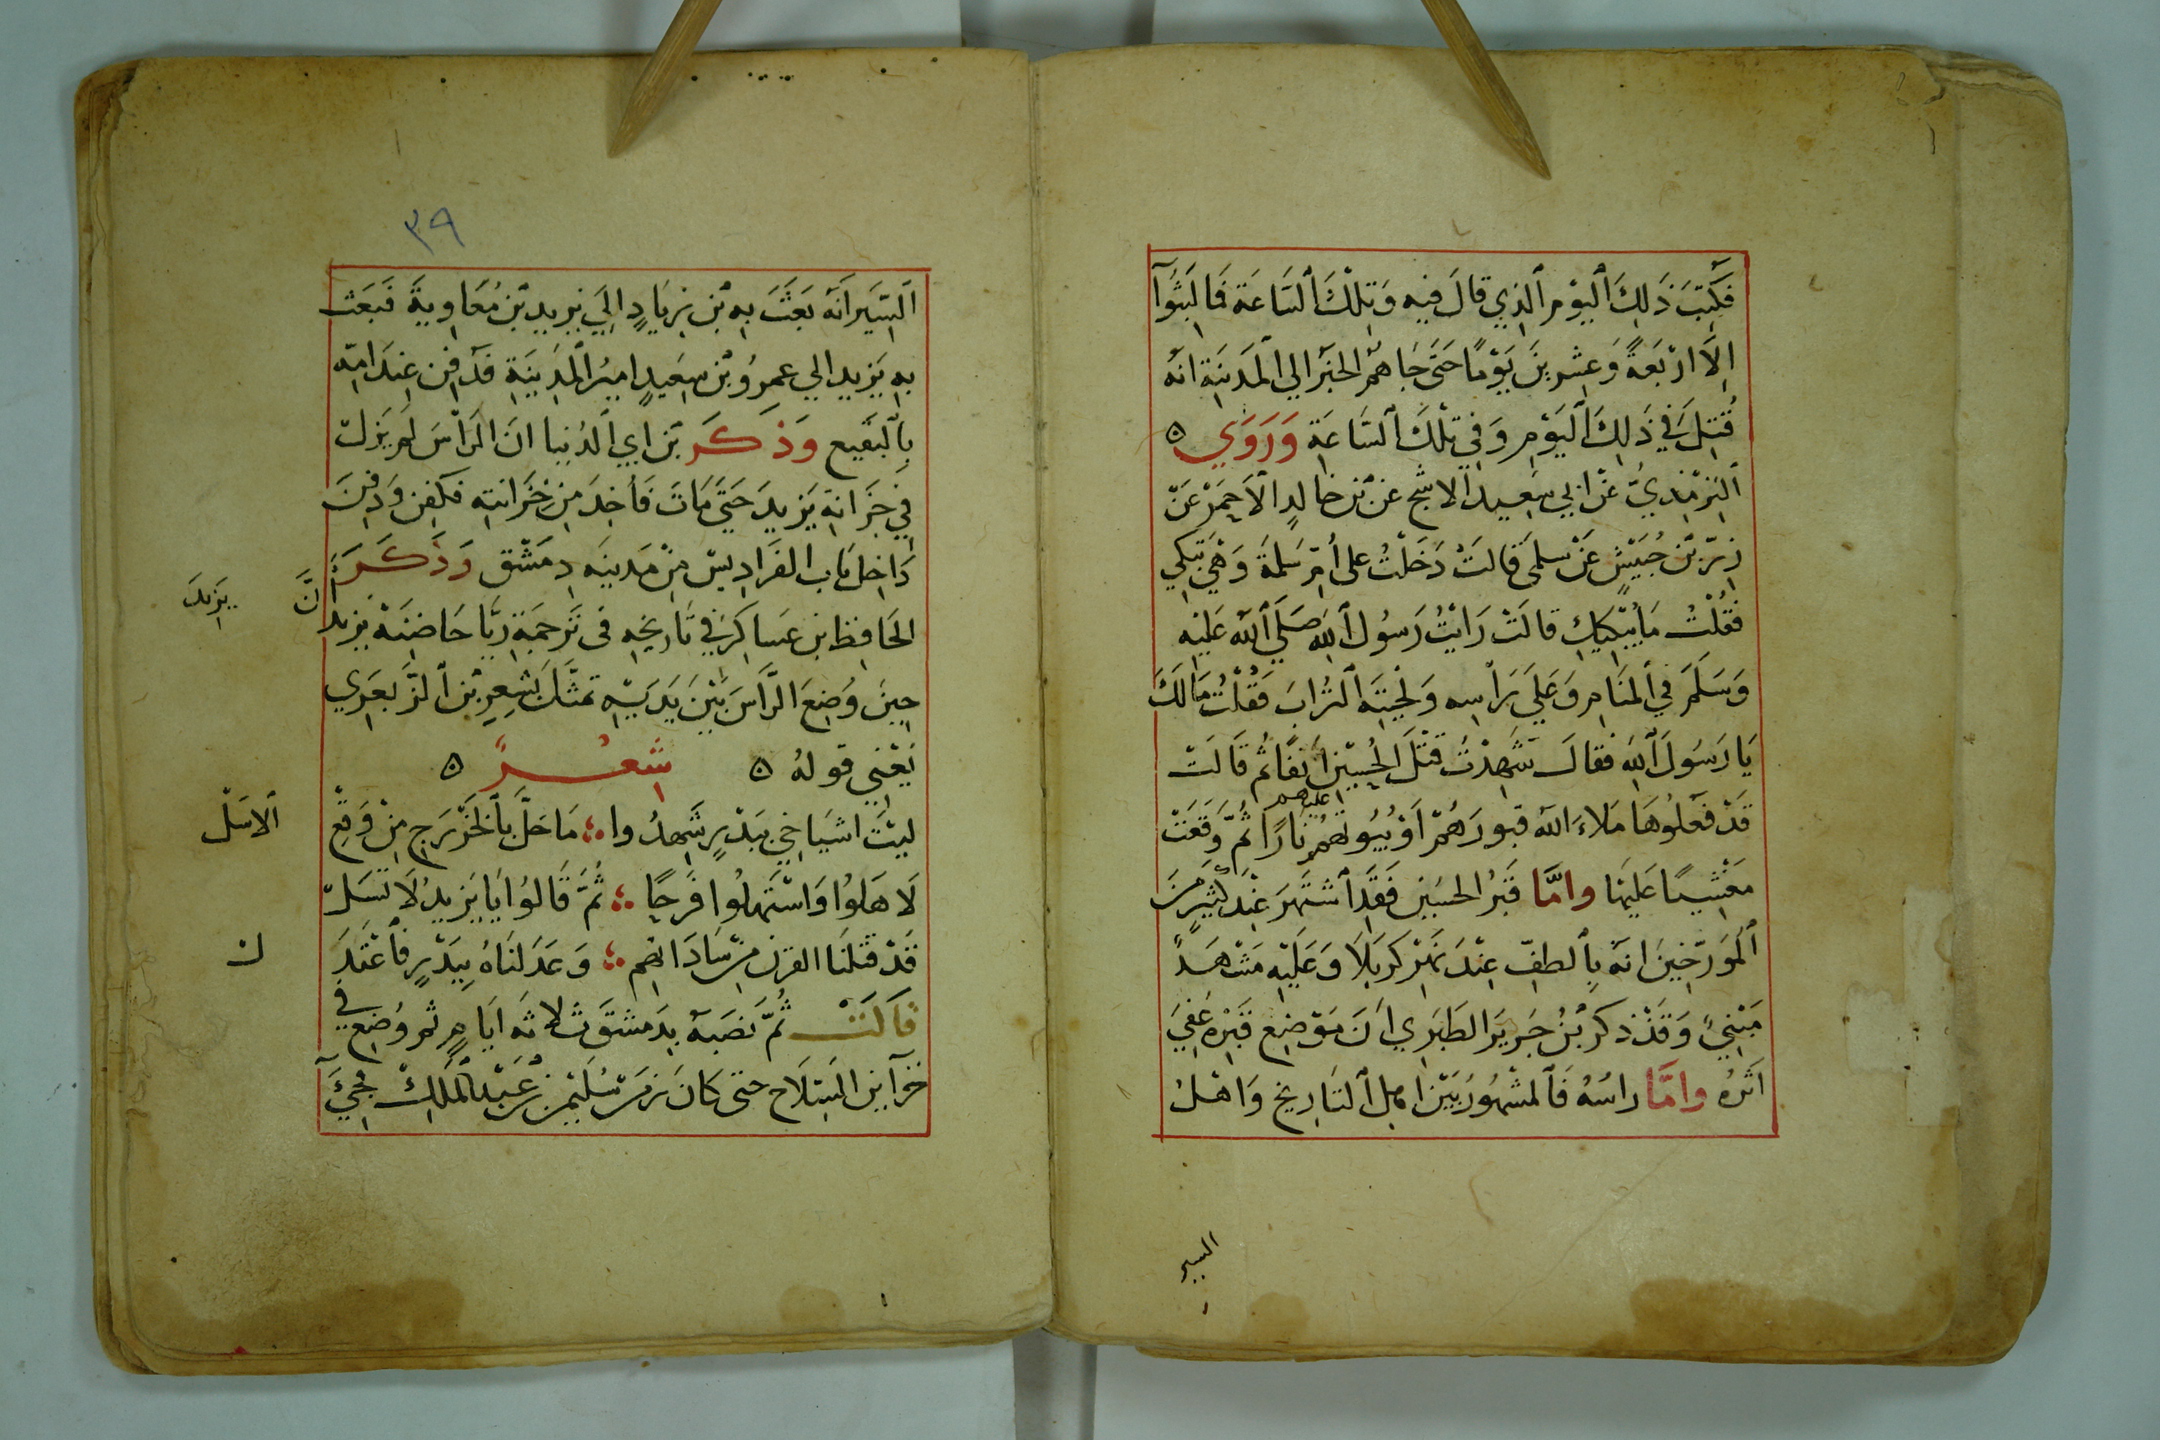 فكتب ذلك اليوم الذي قال فيه وتلك الساعة فما لبثوا
الا اربعة وعشرين يوما حتى جاهم الخبر الي المدينة انه
قتل في ذلك اليوم وفي تلك الساعة وروي ه
الترمذي عن ابي سعيد الاشج عن بن خالد الاحمر عن
زر بن حبيش عن سلمى قالت دخلت على ام سلمة وهي تبكي
فقلت ما يبكيك قالت رايت رسول الله صلي الله عليه
وسلم في المنام وعلي راسه ولحيته التراب فقلت مالك
يا رسول الله فقال شهدت قتل الحسين انفا ثم قالت
قد فعلوها ملاء الله قبورهم او بيوتهم عليهم نارا ثم وقعت
مغشيا عليها واما قبر الحسين فقد اشتهر عند كثير من
المورخين انه بالطف عند نهر كربلا وعليه مشهد
مبني وقد ذكر بن جرير الطبري ان موضع قبره عفي
اثره واما راسه فالمشهور بين اهل التاريخ واهل
السير
٣٩
السير انه بعث به بن زياد الي يزيد بن معاوية فبعث
به يزيد الي عمرو بن سعيد امير المدينة فدفن عند امه
بالبقيع وذكر بن ابي الدنيا ان الراس لم يزل
في خزانة يزيد حتي مات فاخذ من خزانته فكفن ودفن
داخل باب الفراديس من مدينه دمشق وذكر
الحافظ بن عساكر في تاريخه في ترجمة ريا حاضنة يزيد ان يزيد
حين وضع الراس بين يديه تمثل بشعر بن الزبعري
يعني قوله ه شعر ه
ليت اشياخي ببدر شهدوا ؛ ما حل بالخزرج من وقع الاسل
لا هلوا واستهلوا فرحا ؛ ثم قالوا يا يزيد لا تسل
قد قتلنا القرن من ساداتهم ؛ وعدلناه ببدر فاعتدل
قالت ثم نصبه بدمشق ثلاثه ايام ثم وضع في
خزاين السلاح حتى كان زمن سليمن بن عبد الملك فجيء